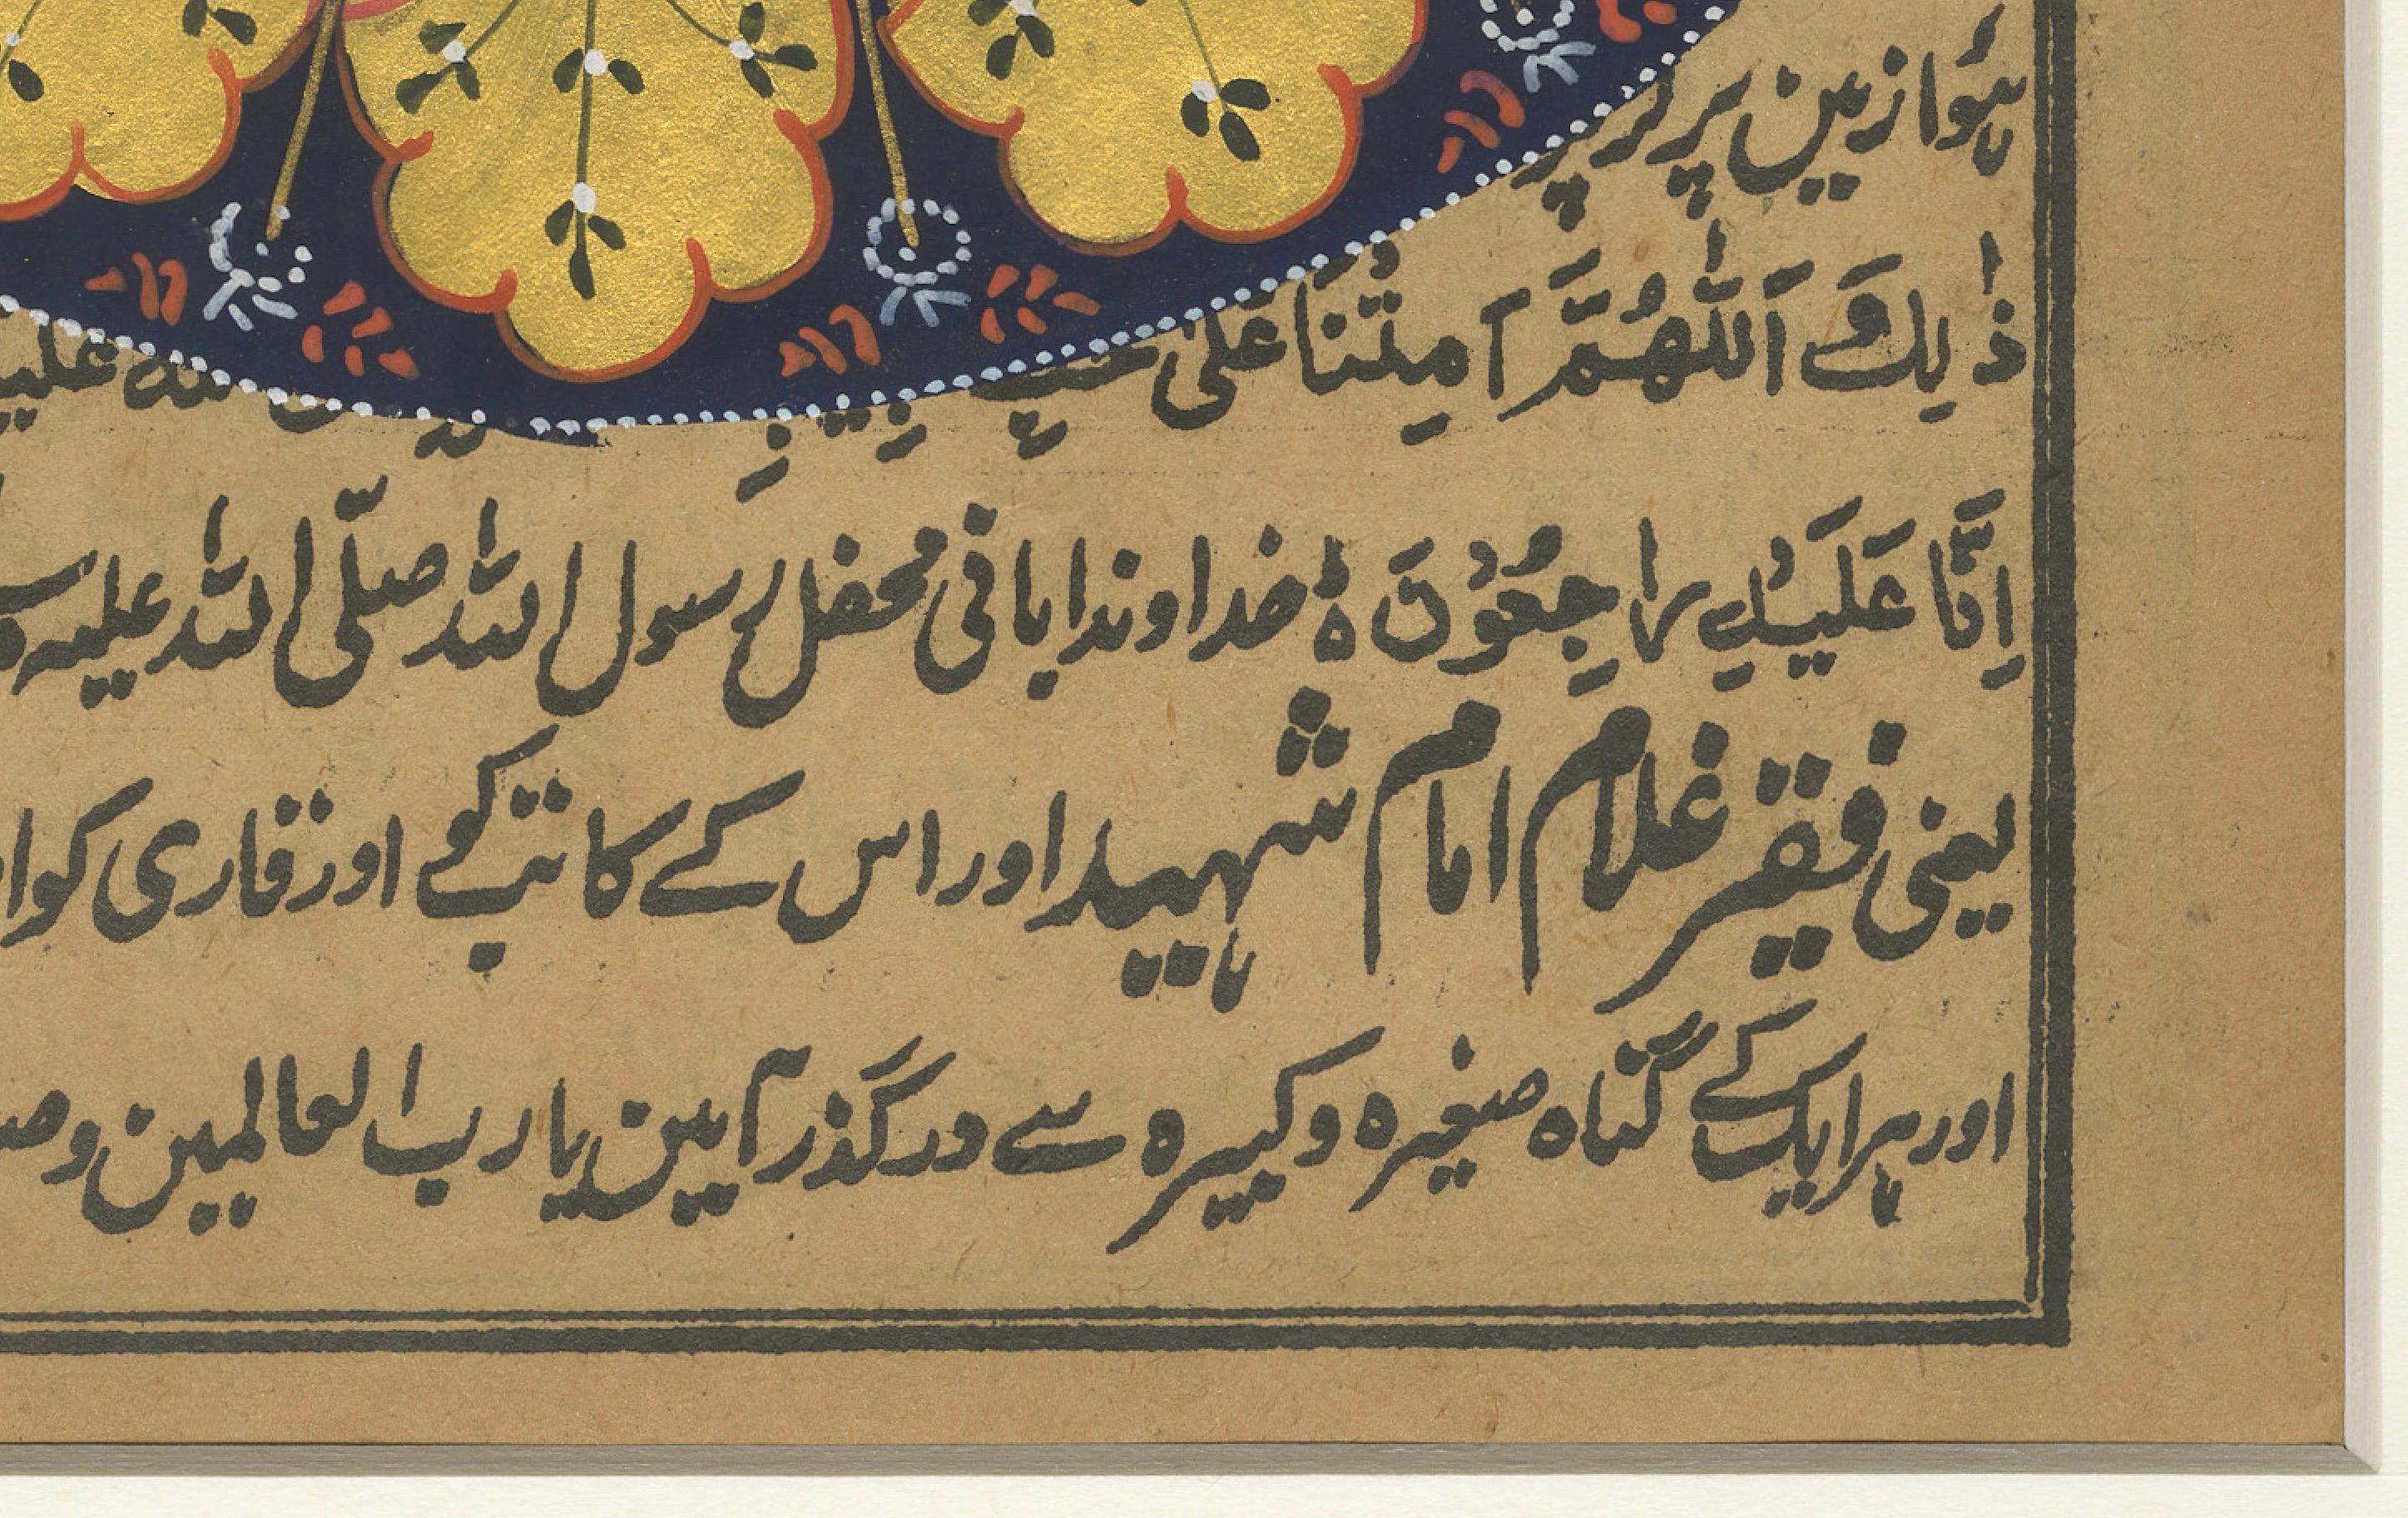 ہوا زمین پر گر پڑ
ذٰلِكَ اَللّٰهُمَّ اَمِتْنَا عَلىٰ
اِنَّا عَلَيْهِ رَاجِعُوْنَ ہ خداوندا بانی محفل رسول اللہ صلّی اللہ علیہ
یعنی فقیر غلام امام شہید اور اس کے کاتب کو اور قاری کو
اور ہر ایک کے گناہ صغیرہ و کبیرہ سے درگذر آمین یا رب العالمین